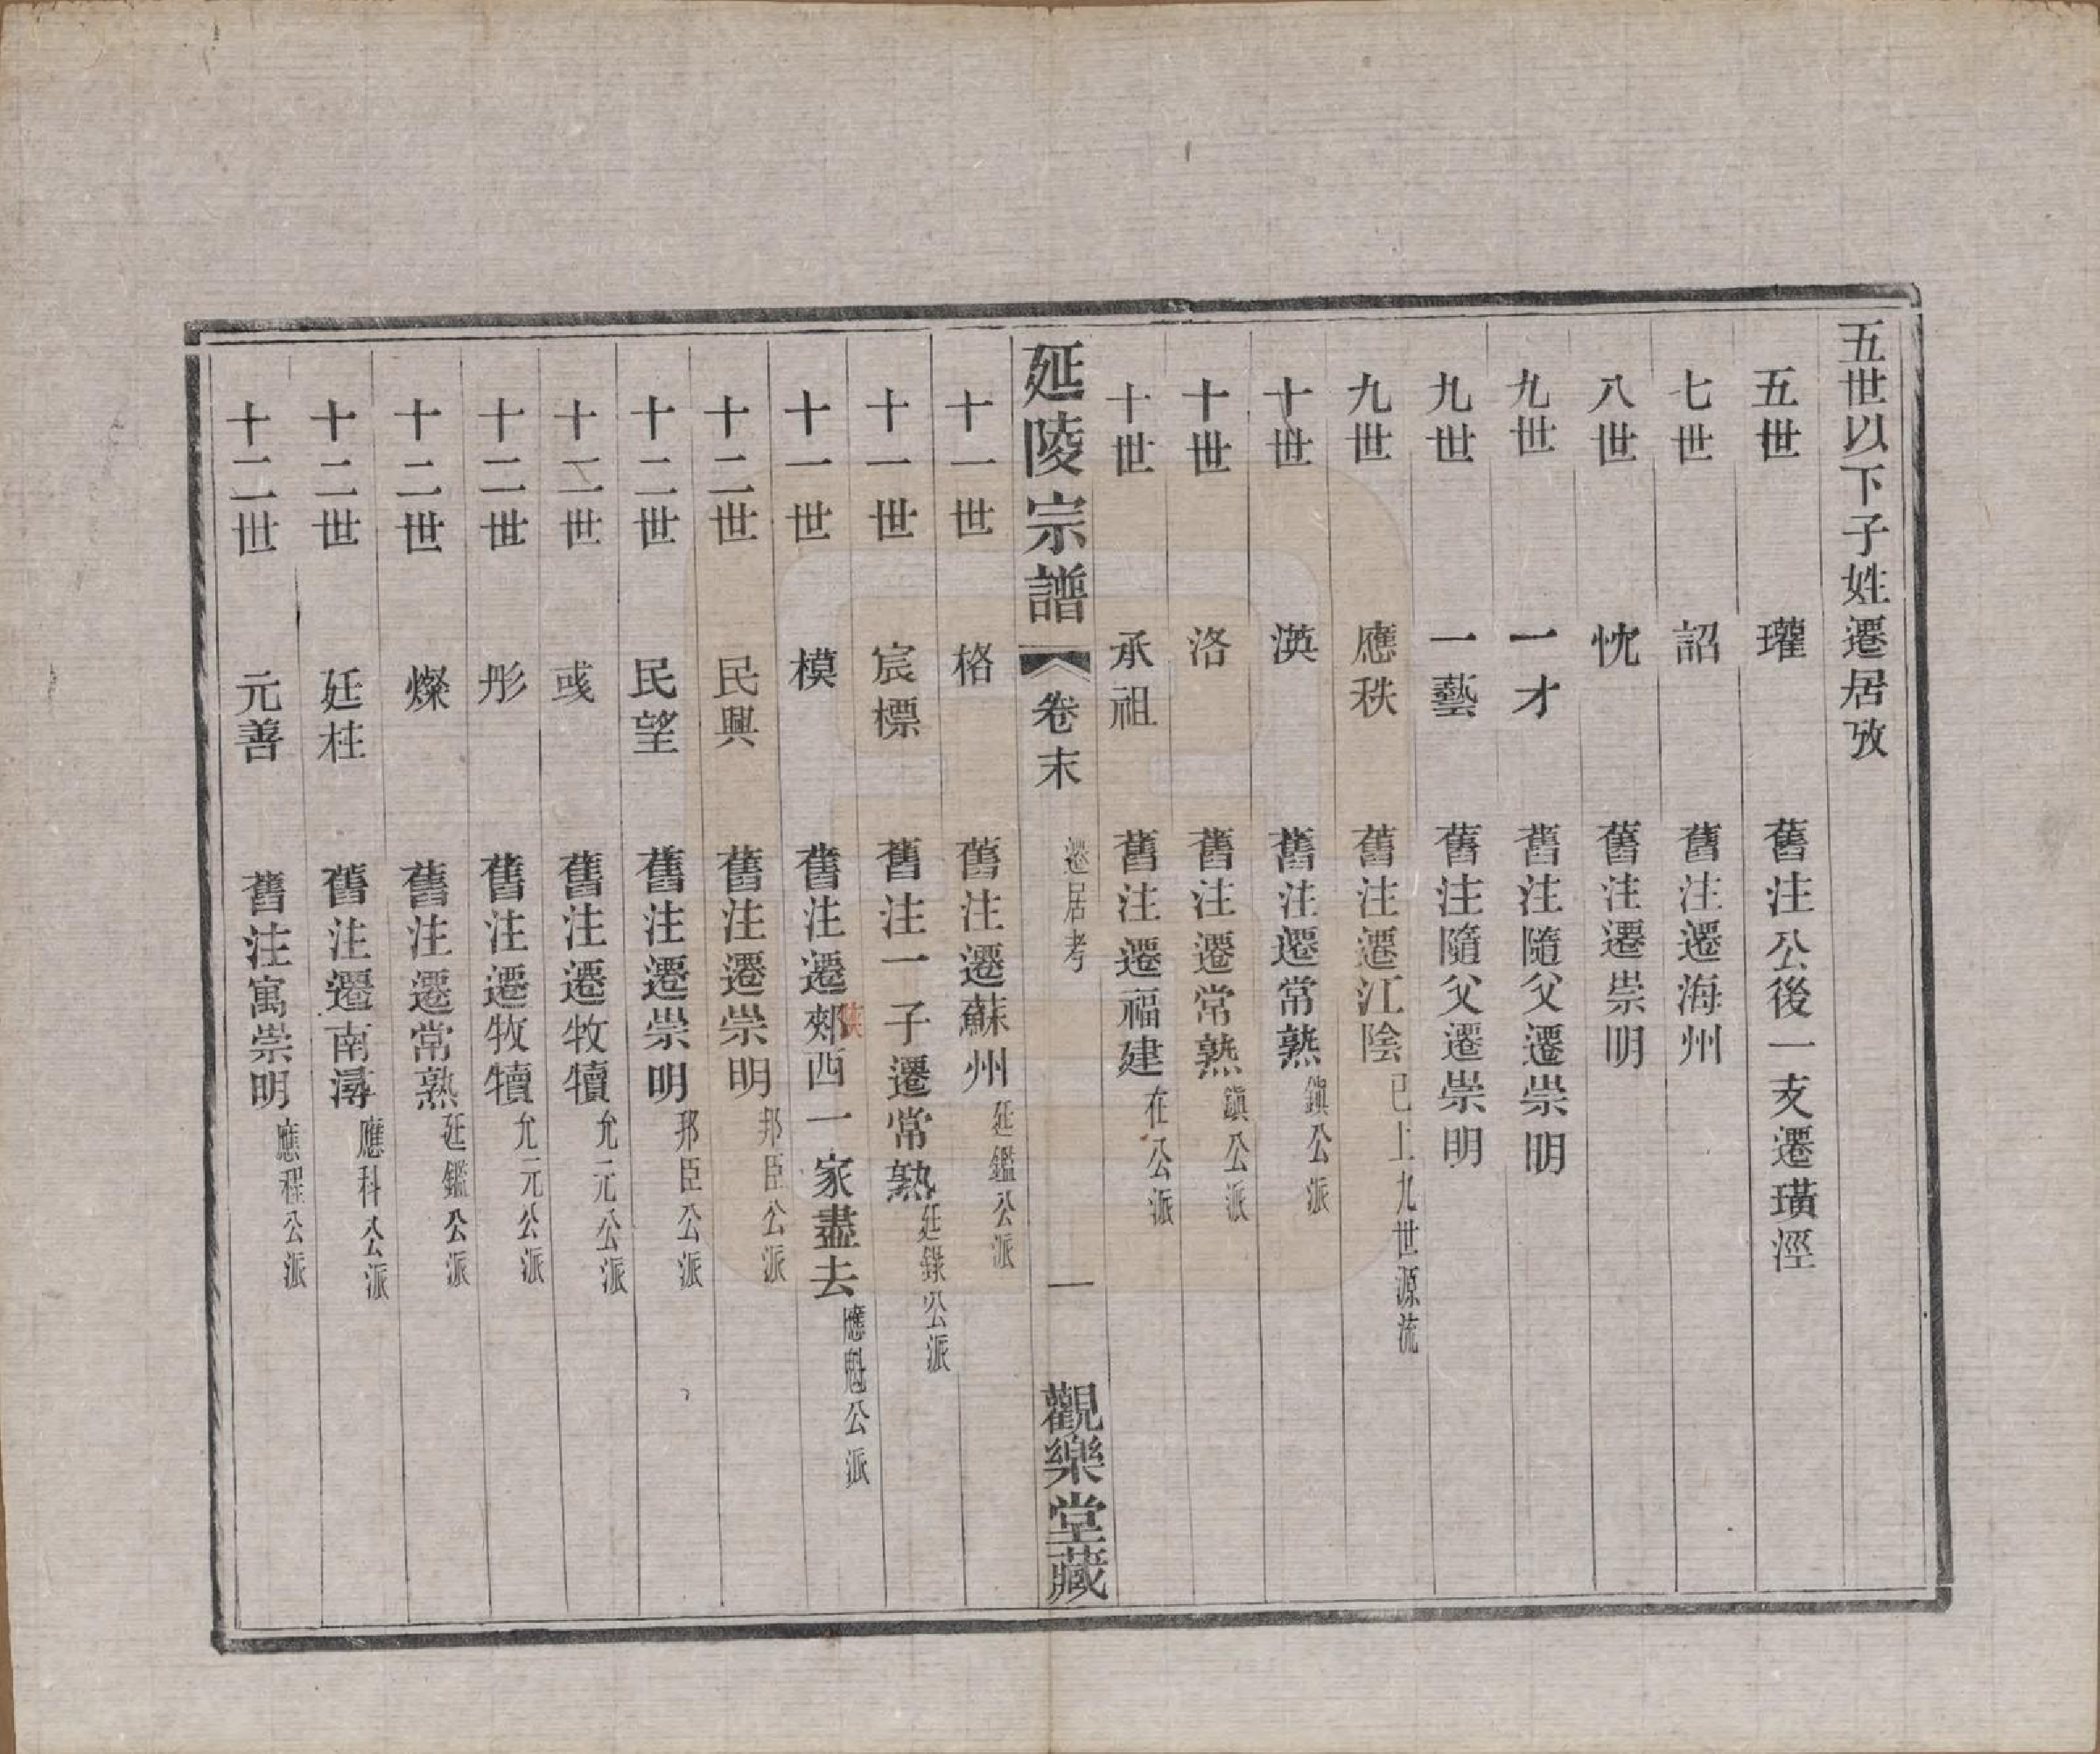 五世以下子姓遷居攷
五世 瓘 舊注公後一支遷璜涇
七世 詔 舊注遷海州
八世 忱 舊注遷崇明
九世 一才 舊注隨父遷崇明
九世 一藝 舊注隨父遷崇明
九世 應秩 舊注遷江陰 已上九世源流
十世 渶 舊注遷常熟 鎮公派
十世 洛 舊注遷常熟 鎮公派
十世 承祖 舊注遷福建 在公派
延陵宗譜 卷末 遷居考 一 觀樂堂藏
十一世 格 舊注遷蘇州 廷鑑公派
十一世 宸標 舊注一子遷常熟 廷錄公派
十一世 模 舊注遷郟西一家盡去 應魁公派
陜
十二世 民興 舊注遷崇明 邦臣公派
十二世 民望 舊注遷崇明 邦臣公派
十二世 彧 舊注遷牧犢 允元公派
十二世 彤 舊注遷牧犢 允元公派
十二世 燦 舊注遷常熟 廷鑑公派
十二世 廷柱 舊注遷南潯 應科公派
十二世 元善 舊注寓崇明 應程公派